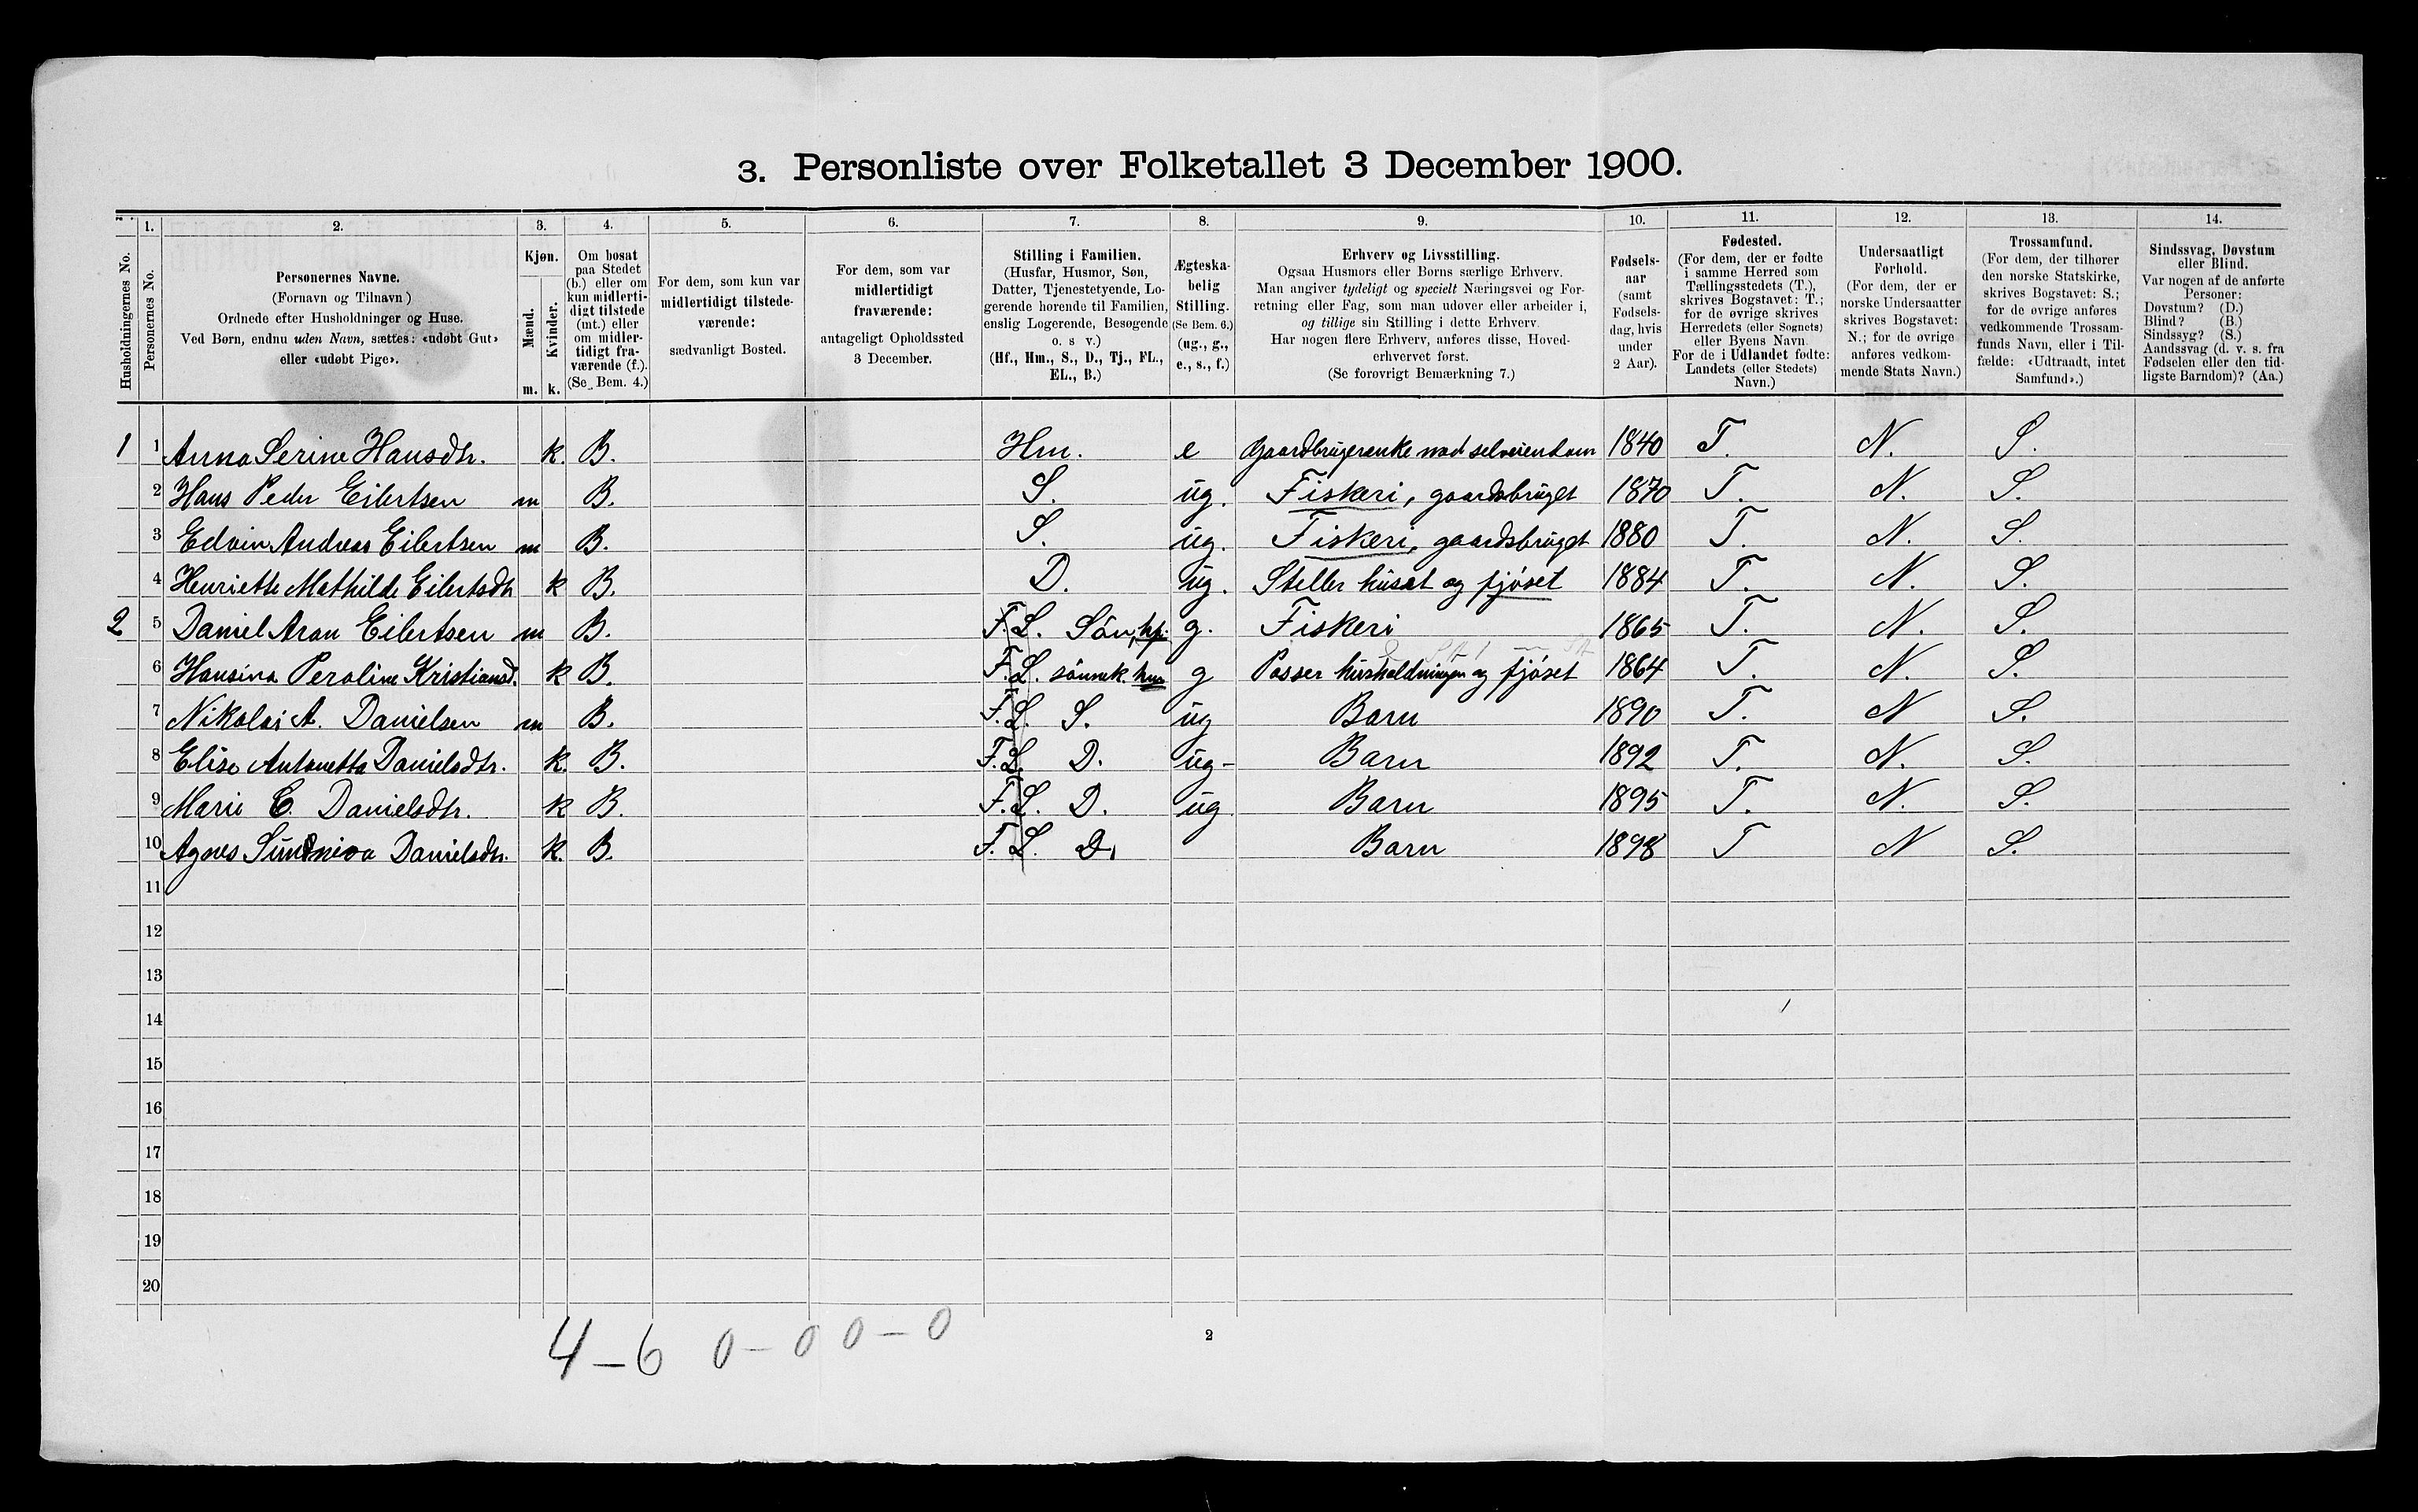 3. Personliste over Folketallet 3 December 1900.
1. 2. 3. 4. 5. 6. 7. 8. 9. 10. 11. 12. 13. 14.
Husholdningernes No.
Personernes No.
Personernes Navne.
(Fornavn og Tilnavn)
Ordnede efter Husholdninger og Huse.
Ved Børn, endnu uden Navn, sættes: «udøbt Gut»
eller «udøbt Pige».
Kjøn.
Mænd.
Kvinder.
m. k.
Om bosat
paa Stedet
(b.) eller om
kun midlerti-
digt tilstede
(mt.) eller
om midler-
tidigt fra-
værende (f.).
(Se Bem. 4.)
For dem, som kun var
midlertidigt tilstede-
værende:
sædvanligt Bosted.
For dem, som var
midlertidigt
fraværende:
antageligt Opholdssted
3 December.
Stilling i Familien.
(Husfar, Husmor, Søn,
Datter, Tjenestetyende, Lo-
gerende hørende til Familien,
enslig Logerende, Besøgende
o. s v.)
(Hf., Hm., S., D., Tj., FL.,
EL., B.)
Ægteska-
belig
Stilling.
(Se Bem. 6.)
(ug., g.,
e., s., f.)
Erhverv og Livsstilling.
Ogsaa Husmors eller Børns særlige Erhverv.
Man angiver tydeligt og specielt Næringsvei og For-
retning eller Fag, som man udøver eller arbeider i,
og tillige sin Stilling i dette Erhverv.
Har nogen flere Erhverv, anføres disse, Hoved-
erhvervet først.
(Se forøvrigt Bemærkning 7.)
Fødsels-
aar
(samt
Fødsels-
dag, hvis
under
2 Aar).
Fødested.
(For dem, der er fødte
i samme Herred som
Tællingsstedets (T.),
skrives Bogstavet: T.;
for de øvrige skrives
Herredets (eller Sognets)
eller Byens Navn.
For de i Udlandet fødte:
Landets (eller Stedets)
Navn.)
Undersaatligt
Forhold.
(For dem, der er
norske Undersaatter
skrives Bogstavet:
N.; for de øvrige
anføres vedkom-
mende Stats Navn.)
Trossamfund.
(For dem, der tilhører
den norske Statskirke,
skrives Bogstavet: S.;
for de øvrige anføres
vedkommende Trossam-
funds Navn, eller i Til-
fælde: «Udtraadt, intet
Samfund».)
Sindssvag, Døvstum
eller Blind.
Var nogen af de anførte
Personer:
Døvstum? (D.)
Blind? (B.)
Sindssyg? (S.)
Aandssvag (d. v. s. fra
Fødselen eller den tid-
ligste Barndom)? (Aa.)
1 1 Anna Serine Hansdtr. k. B. Hm. e Gaardbrugerenke med selveiendom 1840 T. N. S.
2 Hans Peder Eilertsen m B. S. ug. Fiskeri, gaardsbruget 1870 T. N. S.
3 Edvin Andreas Eilertsen m B. S. ug. Fiskeri, gaardsbruget 1880 T. N. S.
4 Henriette Mathilde Eilertsdtr k B. D. ug. Steller huset og fjøset 1884 T. N. S.
2 5 Daniel Aron Eilertsen m B. F.L. Søn, hf. g. Fiskeri 1865 T. N. S.
6 Hansina Peroline Kristiansd. k B. F.L. sønnek. hm g Passer husholdningen og fjøset 1864 T. N. S.
7 Nikolai A. Danielsen m B. F.L. S. ug Barn 1890 T. N S.
8 Elise Antonetta Danielsdtr. k. B. F.L. D. ug- Barn 1892 T. N. S.
9 Marie C. Danielsdtr. k B. F.L. D. ug Barn 1895 T. N. S.
10 Agnes Sunniva Danielsdtr. k. B. F.L. D. Barn 1898 T N S.
11
12
13
14
15
16
17
18
19
20
4-6 0-0 0-0
2